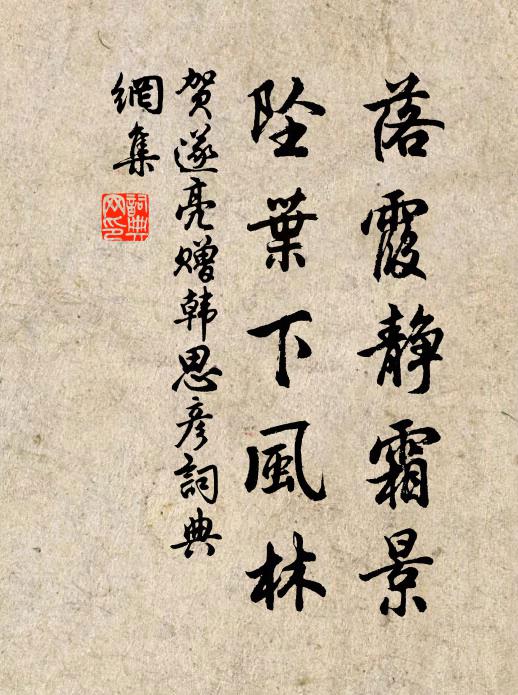 落霞静霜景
坠葉下風林
贺遂亮赠韩思彦詞典
網集
詞典
网印